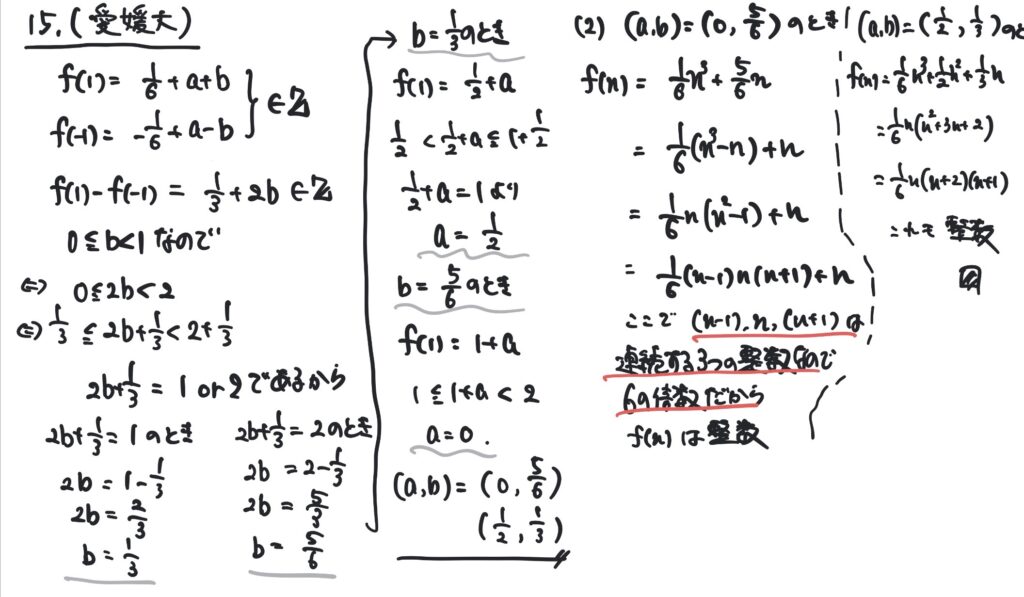 15.(愛媛大)
f(1) = 1/6 + a + b
f(-1) = -1/6 + a - b
} ∈ ℤ
f(1) - f(-1) = 1/3 + 2b ∈ ℤ
0 ≦ b < 1 なので
⇔ 0 ≦ 2b < 2
⇔ 1/3 ≦ 2b + 1/3 < 2 + 1/3
2b + 1/3 = 1 or 2 であるから
2b + 1/3 = 1 のとき
2b = 1 - 1/3
2b = 2/3
b = 1/3
2b + 1/3 = 2 のとき
2b = 2 - 1/3
2b = 5/3
b = 5/6
b = 1/3 のとき
f(1) = 1/2 + a
1/2 < 1/2 + a ≦ 1 + 1/2
1/2 + a = 1 より
a = 1/2
b = 5/6 のとき
f(1) = 1 + a
1 ≦ 1 + a < 2
a = 0.
(a,b) = (0, 5/6)
(1/2, 1/3)
(2) (a,b) = (0, 5/6) のとき
f(n) = 1/6 n³ + 5/6 n
= 1/6 (n³ - n) + n
= 1/6 n (n² - 1) + n
= 1/6 (n-1) n (n+1) + n
ここで (n-1), n, (n+1) は
連続する3つの整数なので
6の倍数だから
f(n) は整数
(a,b) = (1/2, 1/3) のと
f(n) = 1/6 n³ + 1/2 n² + 1/3 n
= 1/6 n (n² + 3n + 2)
= 1/6 n (n+2) (n+1)
これも整数